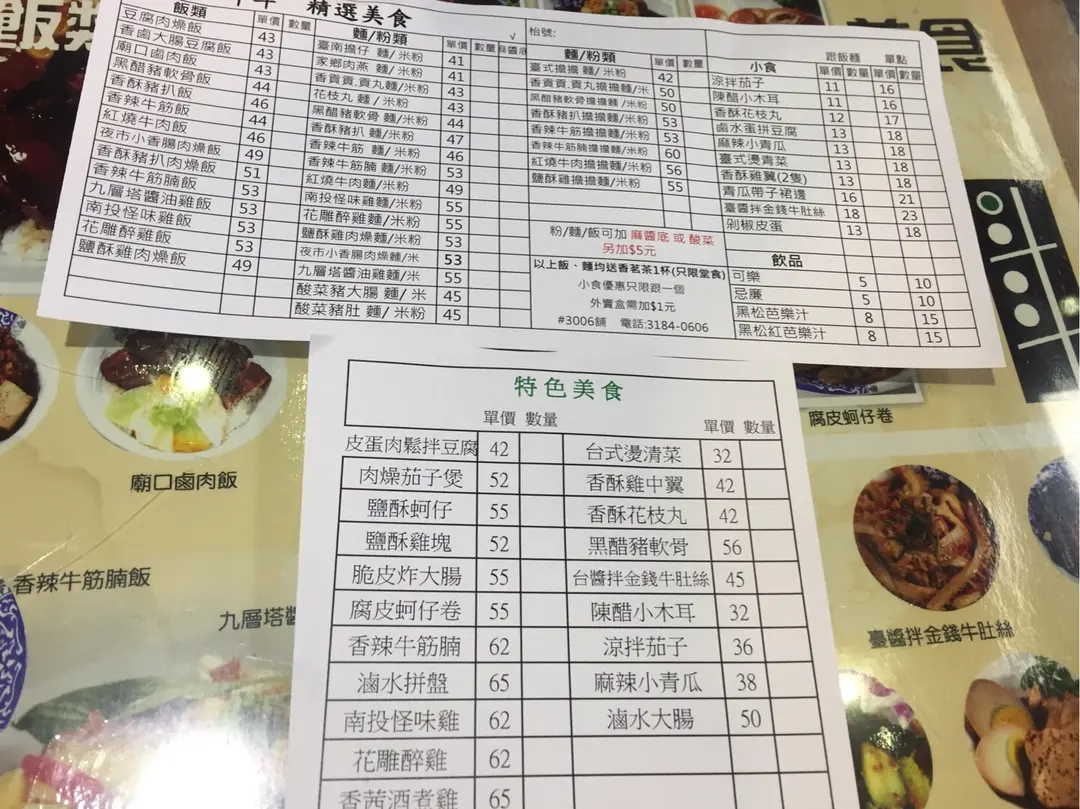 精選美食
飯類 單價 數量
豆腐肉燥飯 43
香鹵大腸豆腐飯 43
廟口鹵肉飯 43
黑醋豬軟骨飯 44
香酥豬扒飯 46
香辣牛筋飯 44
紅燒牛肉飯 46
夜市小香腸肉燥飯 49
香酥豬扒肉燥飯 51
香辣牛筋腩飯 53
九層塔醬油雞飯 53
南投怪味雞飯 53
花雕醉雞飯 53
鹽酥雞肉燥飯 49
麵/粉類 單價 數量 √ 麻醬底
臺南擔仔 麵/ 米粉 41
家鄉肉燕 麵/ 米粉 41
香貢貢.貢丸麵/米粉 43
花枝丸 麵 / 米粉 43
黑醋豬軟骨 麵/ 米粉 44
香酥豬扒 麵/ 米粉 47
香辣牛筋 麵 / 米粉 46
香辣牛筋腩 麵 /米粉 53
紅燒牛肉麵/ 米粉 49
南投怪味雞麵/米粉 55
花雕醉雞麵/ 米粉 55
鹽酥雞肉燥麵/米粉 53
夜市小香腸肉燥麵/米 53
九層塔醬油雞麵/米 55
酸菜豬大腸 麵/ 米 45
酸菜豬肚 麵/ 米粉 45
枱號:
麵/粉類 單價 數量
臺式擔擔 麵/ 米粉 42
香貢貢.貢丸擔擔麵/米 50
黑醋豬軟骨擔擔麵/米粉 50
香酥豬扒擔擔麵/米粉 53
香辣牛筋擔擔麵/米粉 53
香辣牛筋腩擔擔麵/米粉 60
紅燒牛肉擔擔麵/米粉 56
鹽酥雞擔擔麵/米粉 55
粉/麵/飯可加 麻醬底 或 酸菜
另加$5元
以上飯、麵均送香茗茶1杯(只限堂食)
小食優惠只限跟一個
外賣盒需加$1元
#3006舖 電話:3184-0606
跟飯麵 單點
小食 單價 數量 單價 數量
涼拌茄子 11 16
陳醋小木耳 11 16
香酥花枝丸 12 17
鹵水蛋拼豆腐 13 18
麻辣小青瓜 13 18
臺式燙青菜 13 18
香酥雞翼(2隻) 13 18
青瓜帶子裙邊 16 21
臺醬拌金錢牛肚絲 18 23
剁椒皮蛋 13 18
飲品
可樂 5 10
忌廉 5 10
黑松芭樂汁 8 15
黑松紅芭樂汁 8 15
特色美食
單價 數量 單價 數量
皮蛋肉鬆拌豆腐 42 台式燙清菜 32
肉燥茄子煲 52 香酥雞中翼 42
鹽酥蚵仔 55 香酥花枝丸 42
鹽酥雞塊 52 黑醋豬軟骨 56
脆皮炸大腸 55 台醬拌金錢牛肚絲 45
腐皮蚵仔卷 55 陳醋小木耳 32
香辣牛筋腩 62 涼拌茄子 36
滷水拼盤 65 麻辣小青瓜 38
南投怪味雞 62 滷水大腸 50
花雕醉雞 62
香茜酒煮雞 65
廟口鹵肉飯
香辣牛筋腩飯
九層塔醬
腐皮蚵仔卷
臺醬拌金錢牛肚絲